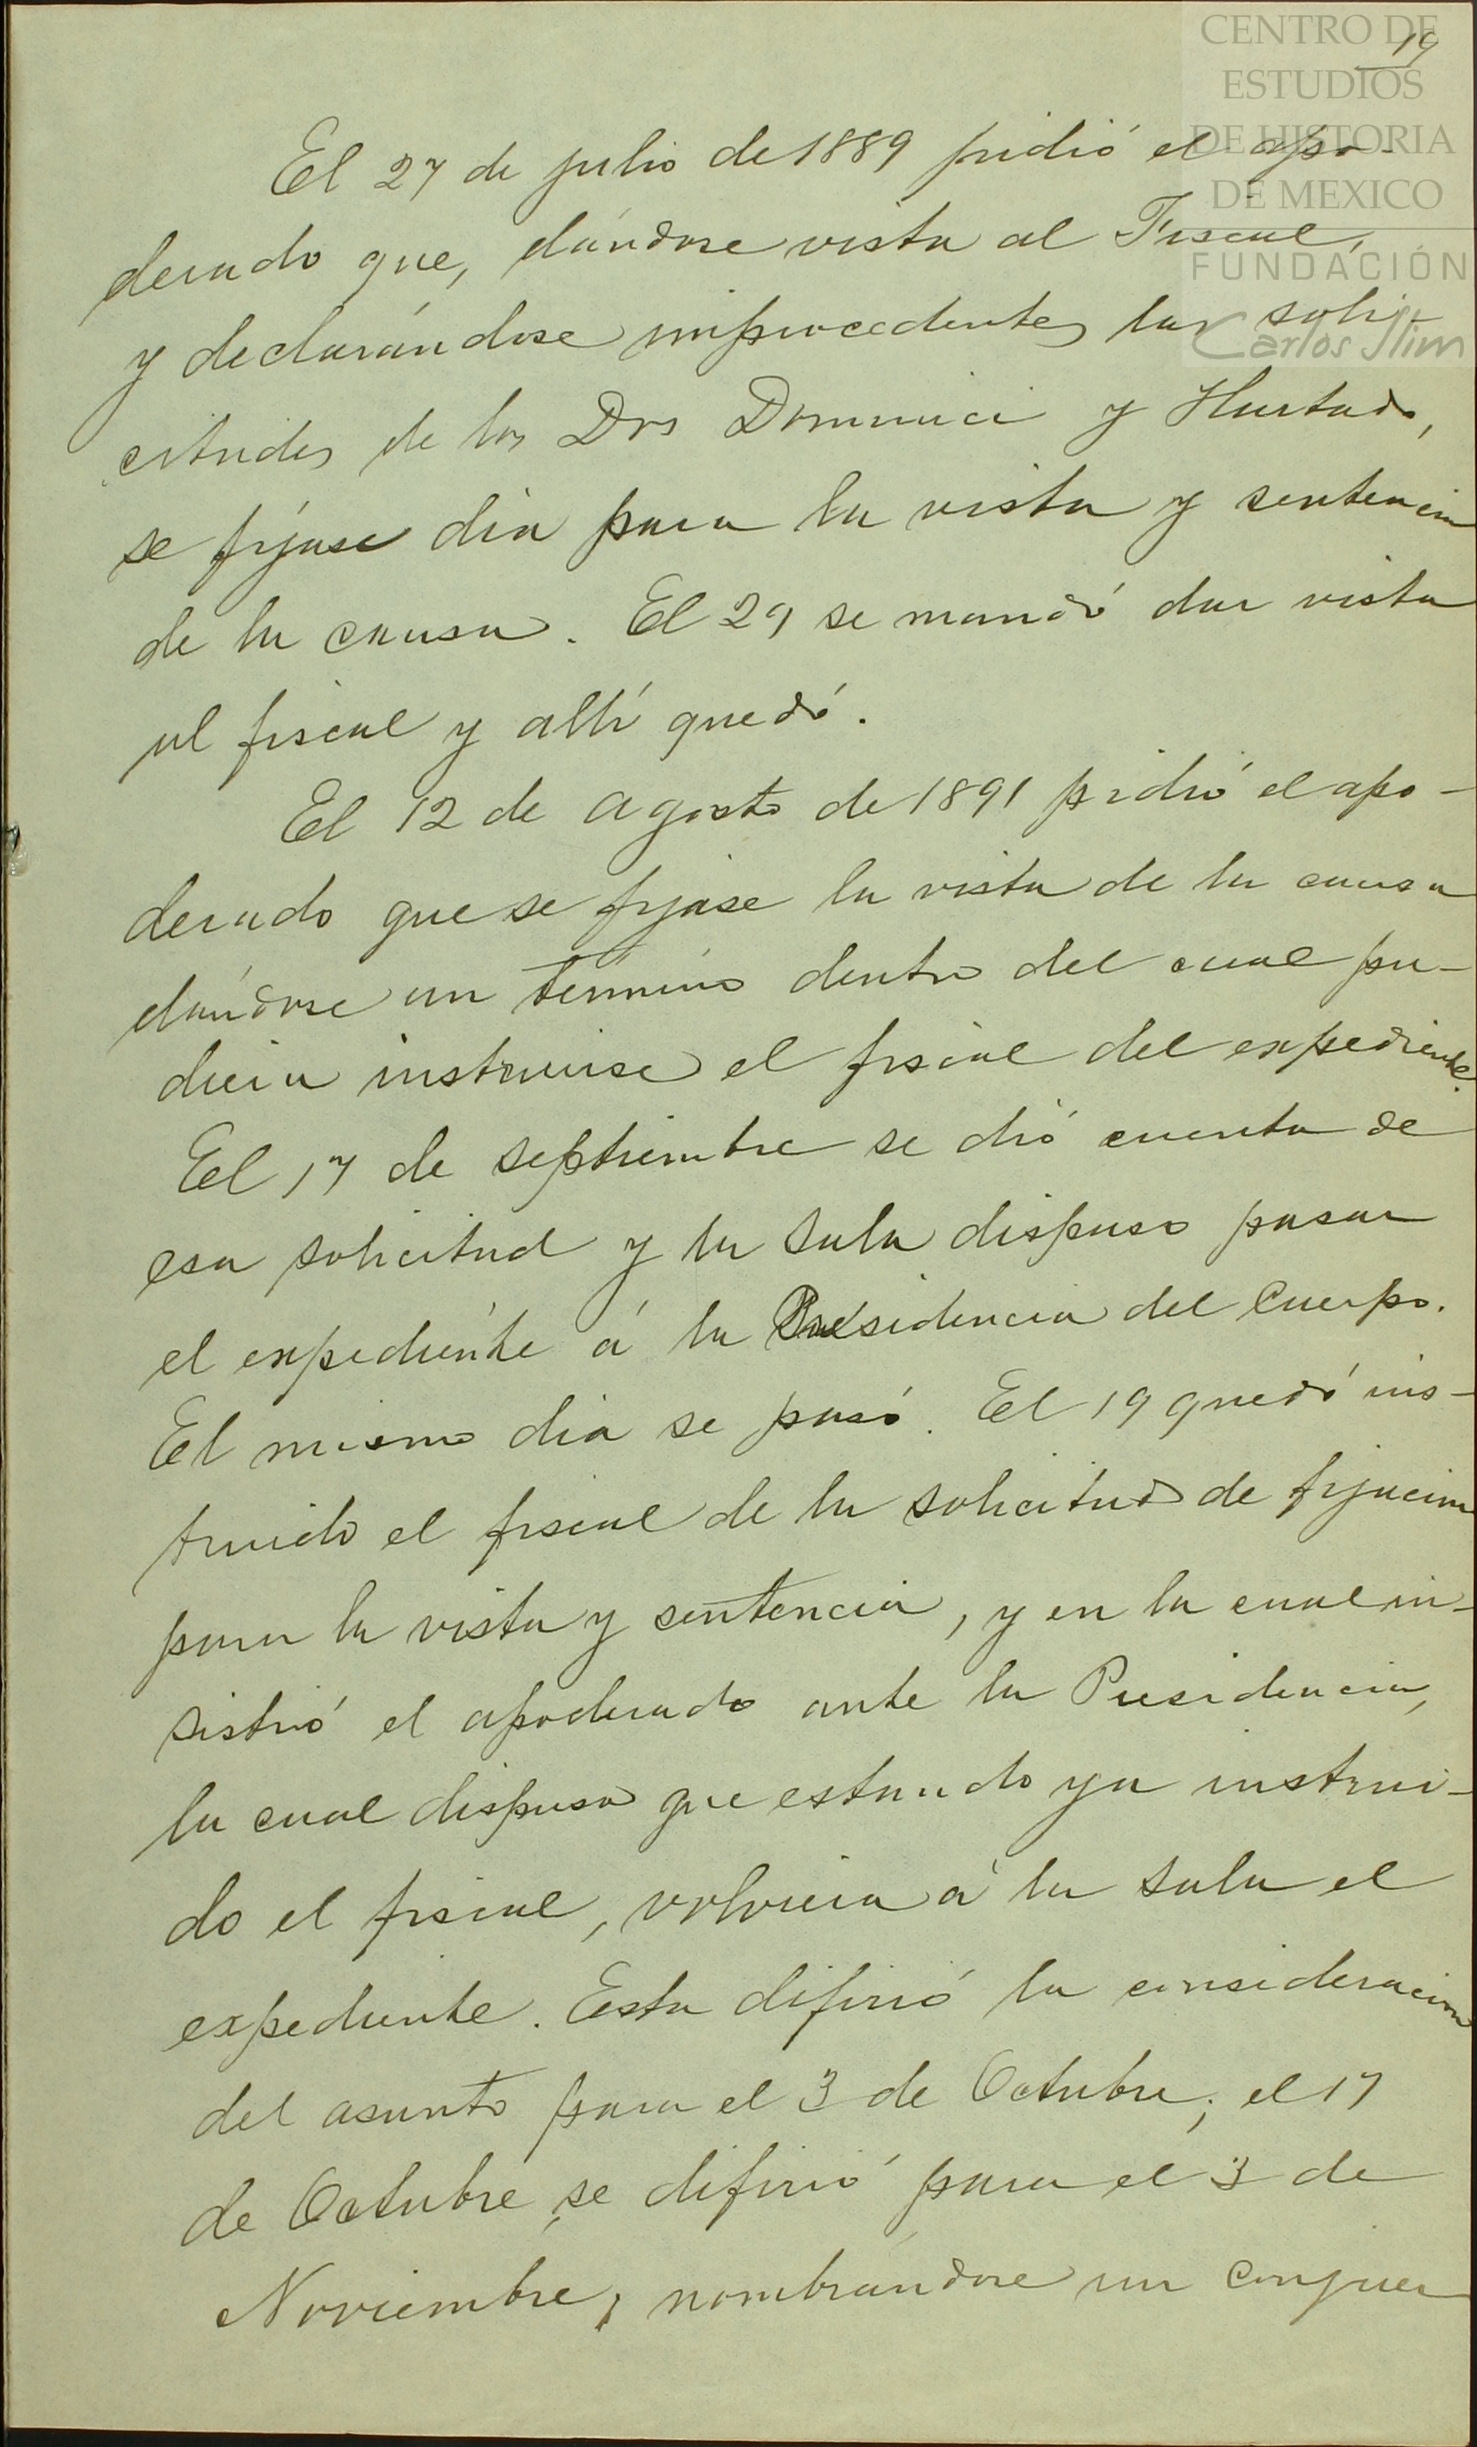 CENTRO DE
ESTUDIOS
DE HISTORIA
DE MEXICO
FUNDACIÓN
Carlos Slim
19
El 27 de julio de 1889 pidió el apo-
derado que, dándose vista al Fiscal,
y declarándose improcedentes las soli-
citudes de los Drs Dominici y Hurtado,
se fijase dia para la vista y sentencia
de la causa. El 29 se mandó dar vista
al fiscal y allí quedó.
El 12 de agosto de 1891 pidió el apo-
derado que se fijase la vista de la causa
dándose un término dentro del cual pu-
diera instruirse el fiscal del expediente.
El 17 de septiembre se dió cuenta de
esa solicitud y la Sala dispuso pasar
el expediente á la Presidencia del Cuerpo.
El mismo dia se pasó. El 19 quedó ins-
truido el fiscal de la solicitud de fijacion
para la vista y sentencia, y en la cual in-
sistió el apoderado ante la Presidencia,
la cual dispuso que estando ya instrui-
do el fiscal, volviera á la Sala el
expediente. Esta difirió la consideracion
del asunto para el 3 de Octubre; el 17
de Octubre se difirió para el 3 de
Noviembre, nombrándose un conjuez